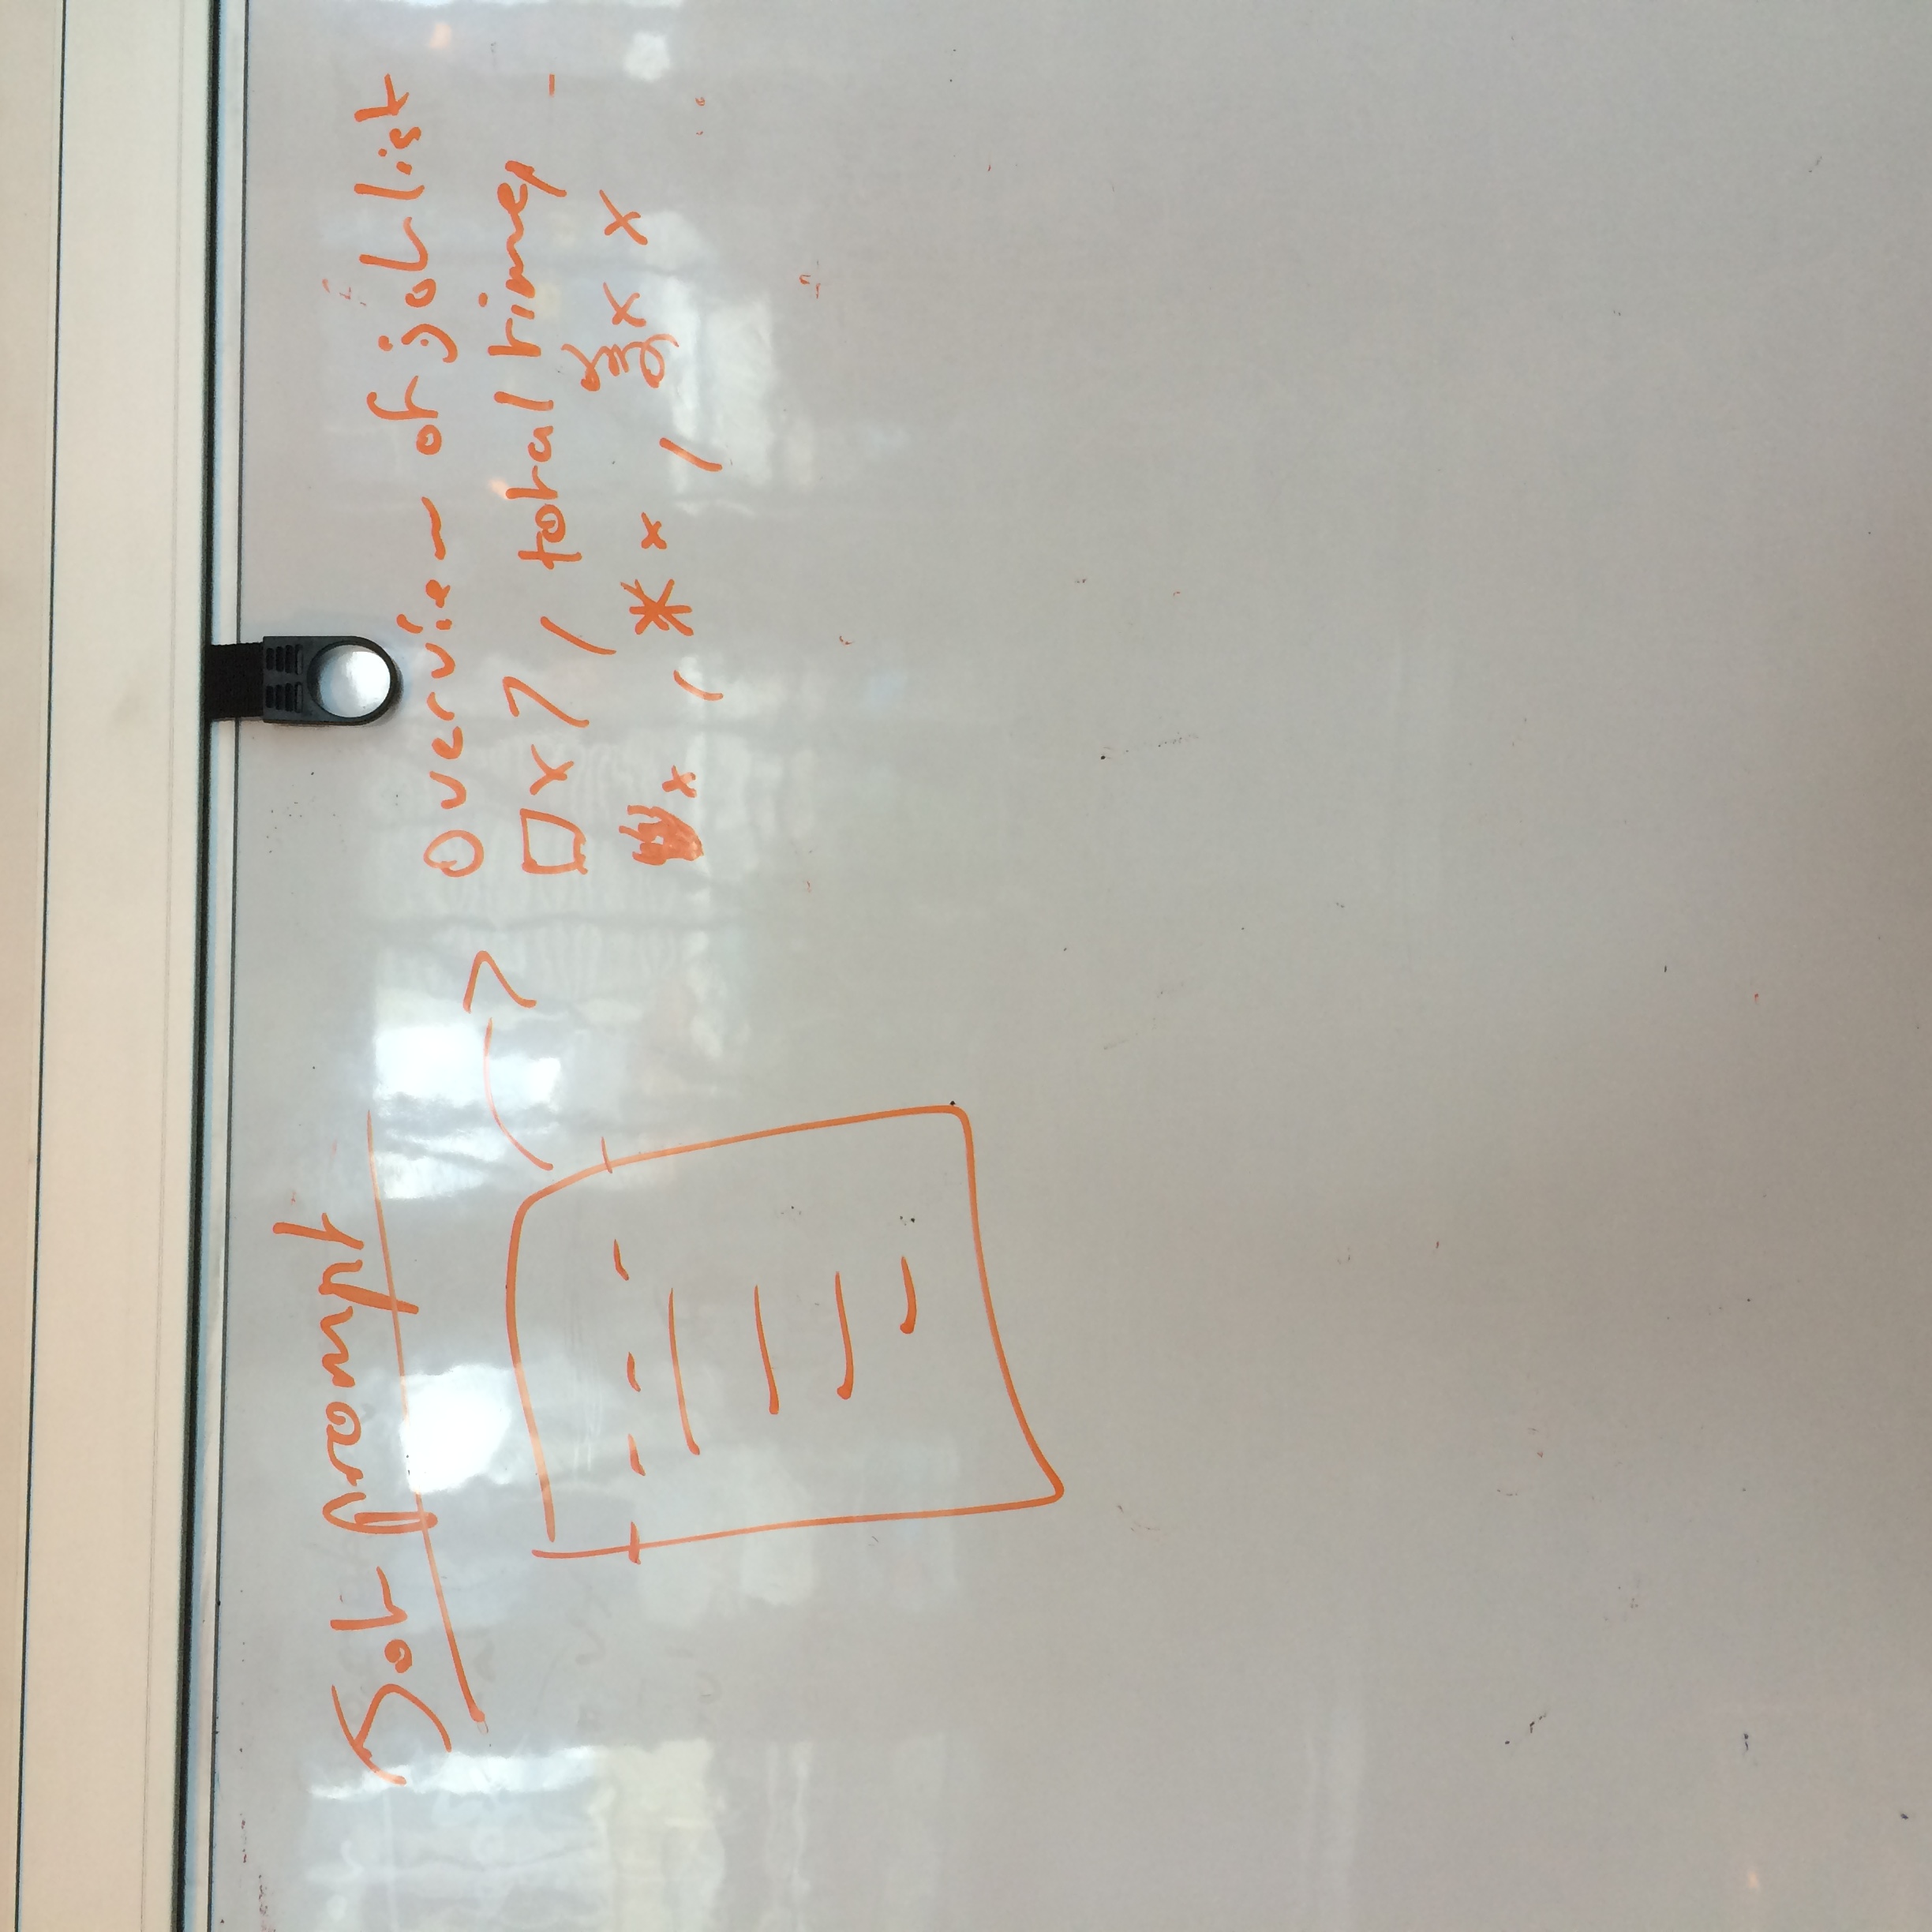 Job prompt
Overview of job list
□ x 7, total time,
x , * x , x x